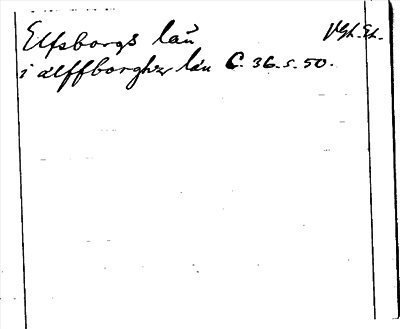 Elfsborgs län Vgl. Gl.
i älffborgher län C. 36. s. 50.